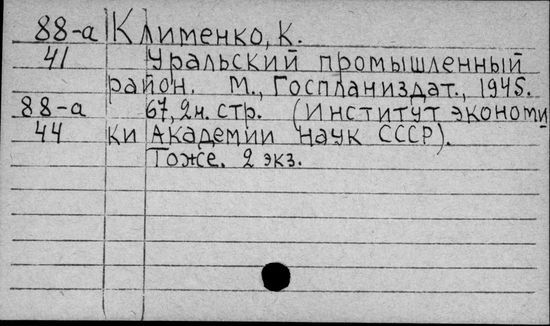 88-а Клименко, К.
41 Уральский промышленный
район. М., Госпланиздат., 1945.
88-а 67,2н. стр. (Институт экономи
44 ки Академии наук СССР).
Тоже. 2 экз.